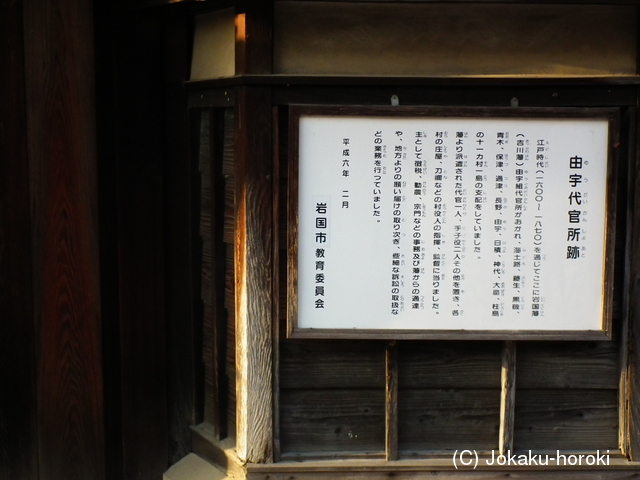 由宇代官所跡
江戸時代(一六〇〇〜一八七〇)を通じてここに岩国藩
(吉川藩)由宇組代官所がおかれ、海土路、藤生、黒磯、
青木、保津、通津、長野、由宇、日積、神代、大畠、柱島
の十一カ村一島の支配をしていました。
藩より派遣された代官一人、手子役二人その他を置き、各
村の庄屋、刀禰などの村役人の指揮、監督に当りました。
主として徴税、勧農、宗門などの事務及び藩からの通達
や、地方よりの願い届けの取り次ぎ、些細な訴訟の取扱な
どの業務を行っていました。
平成六年 二月
岩国市教育委員会
(C) Jokaku-horoki